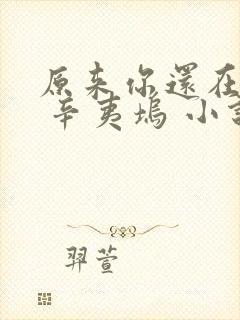 原来你還在
辛夷塢 小説
羿萱